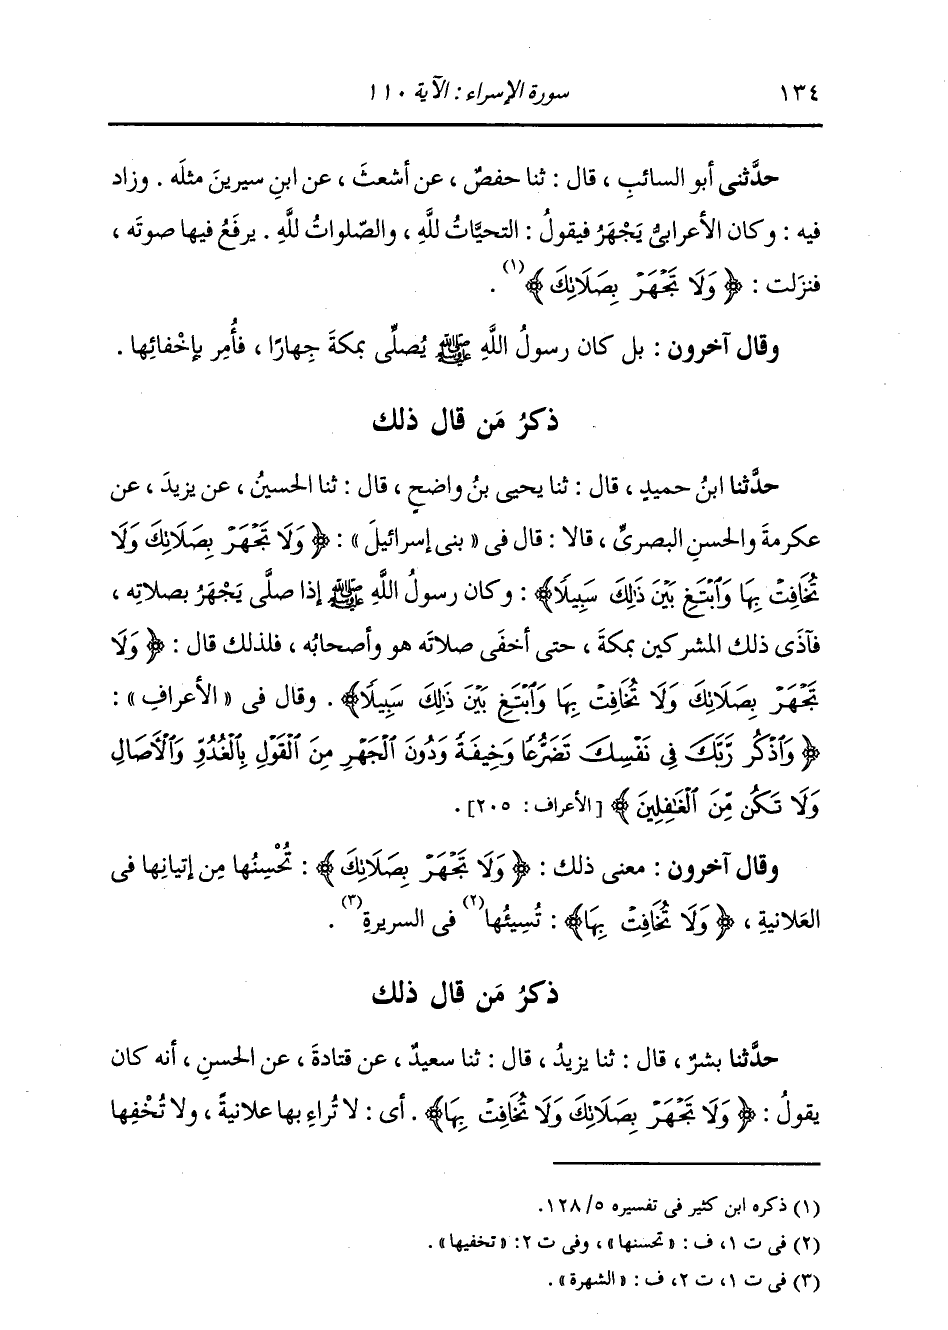 ١٣٤ سورة الإسراء : الآية ١١٠
حدَّثنى أبو السائبِ ، قال : ثنا حفصٌ ، عن أشعثَ ، عن ابنِ سيرينَ مثلَه . وزاد
فيه : وكان الأعرابىُّ يَجْهَرُ فيقولُ : التحيَّاتُ للَّهِ ، والصّلواتُ للَّهِ . يرفَعُ فيها صوتَه ،
فنزَلت : ﴿ وَلَا تَجْهَرْ بِصَلَاتِكَ ﴾(١) .
وقال آخرون : بل كان رسولُ اللَّهِ ﷺ يُصلِّى بمكةَ جِهارًا ، فأُمِر بإخْفائِها .
ذكرُ مَن قال ذلك
حدَّثنا ابنُ حميدٍ ، قال : ثنا يحيى بنُ واضحٍ ، قال : ثنا الحسينُ ، عن يزيدَ ، عن
عكرمةَ والحسنِ البصرىِّ ، قالا : قال فى « بنى إسرائيلَ » : ﴿ وَلَا تَجْهَرْ بِصَلَاتِكَ وَلَا
تُخَافِتْ بِهَا وَٱبْتَغِ بَيْنَ ذَٰلِكَ سَبِيلًا﴾ : وكان رسولُ اللَّهِ ﷺ إذا صلَّى يَجْهَرُ بصلاتِه ،
فآذَى ذلك المشركين بمكةَ ، حتى أخفَى صلاتَه هو وأصحابُه ، فلذلك قال : ﴿ وَلَا
تَجْهَرْ بِصَلَاتِكَ وَلَا تُخَافِتْ بِهَا وَٱبْتَغِ بَيْنَ ذَٰلِكَ سَبِيلًا﴾ . وقال فى « الأعرافِ » :
﴿ وَٱذْكُر رَّبَّكَ فِى نَفْسِكَ تَضَرُّعًا وَخِيفَةً وَدُونَ ٱلْجَهْرِ مِنَ ٱلْقَوْلِ بِٱلْغُدُوِّ وَٱلْآصَالِ
وَلَا تَكُن مِّنَ ٱلْغَٰفِلِينَ ﴾ [ الأعراف : ٢٠٥] .
وقال آخرون : معنى ذلك : ﴿ وَلَا تَجْهَرْ بِصَلَاتِكَ ﴾ : تُحْسِنُها مِن إتيانِها فى
العَلانيةِ ، ﴿ وَلَا تُخَافِتْ بِهَا﴾ : تُسِيئُها(٢) فى السريرةِ(٣) .
ذكرُ مَن قال ذلك
حدَّثنا بشرٌ ، قال : ثنا يزيدُ ، قال : ثنا سعيدٌ ، عن قتادةَ ، عن الحسنِ ، أنه كان
يقولُ : ﴿ وَلَا تَجْهَرْ بِصَلَاتِكَ وَلَا تُخَافِتْ بِهَا﴾ . أى : لا تُراءِ بها علانيةً ، ولا تُخْفِها
(١) ذكره ابن كثير فى تفسيره ٥/ ١٢٨.
(٢) فى ت ١، ف : « تحسنها» ، وفى ت ٢: « تخفيها» .
(٣) فى ت ١، ت ٢، ف : « الشهرة» .